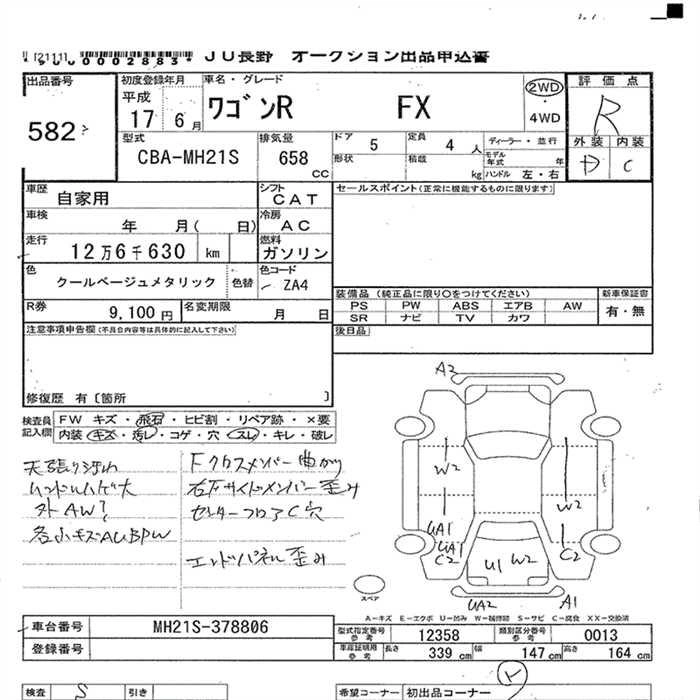 *5000002883* JU長野 オークション出品申込書
出品番号
582
初度登録年月
平成
17 6月
車名・グレード
ワゴンR FX
2WD
4WD
評価点
R
外装 内装
D C
型式
CBA-MH21S
排気量
658
CC
ドア 5
形状
定員 4 人
積載 kg
ディーラー・並行
モデル年式 年
ハンドル 左・右
車歴
自家用
シフト
CAT
車検
年 月( 日)
冷房
AC
走行
12万6千630 km
燃料
ガソリン
色
クールベージュメタリック
色替
色コード
ZA4
R券
9,100円
名変期限
月 日
セールスポイント(正常に機能するものに限ります)
装備品 (純正品に限り○をつけてください)
PS PW ABS エアB AW
SR ナビ TV カワ
新車保証書
有・無
後日品
注意事項申告欄(不具合内容等は具体的に記入して下さい)
修復歴 有〔箇所 〕
検査員記入欄
FW キズ・飛石・ヒビ割・リペア跡・×要
内装 キズ・汚レ・コゲ・穴・スレ・キレ・破レ
天張り汚れ
ハンドルハゲ大
外AW?
各小キズAUBPW
Fクロスメンバー曲がり
右Fサイドメンバー歪み
センターフロアC穴
エンドパネル歪み
A2
W2
W2
UA1
UA1
C2
U1 W2
C2
UA2
A1
スペア
A-キズ E-エクボ U-凹み W-補修跡 S-サビ C-腐食 XX-交換済
車台番号
MH21S-378806
登録番号
型式指定番号
参考
12358
類別区分番号
参考
0013
車庫証明用
参考
長さ 339 cm
幅 147 cm
高さ 164 cm
検査 S
引き
希望コーナー 初出品コーナー